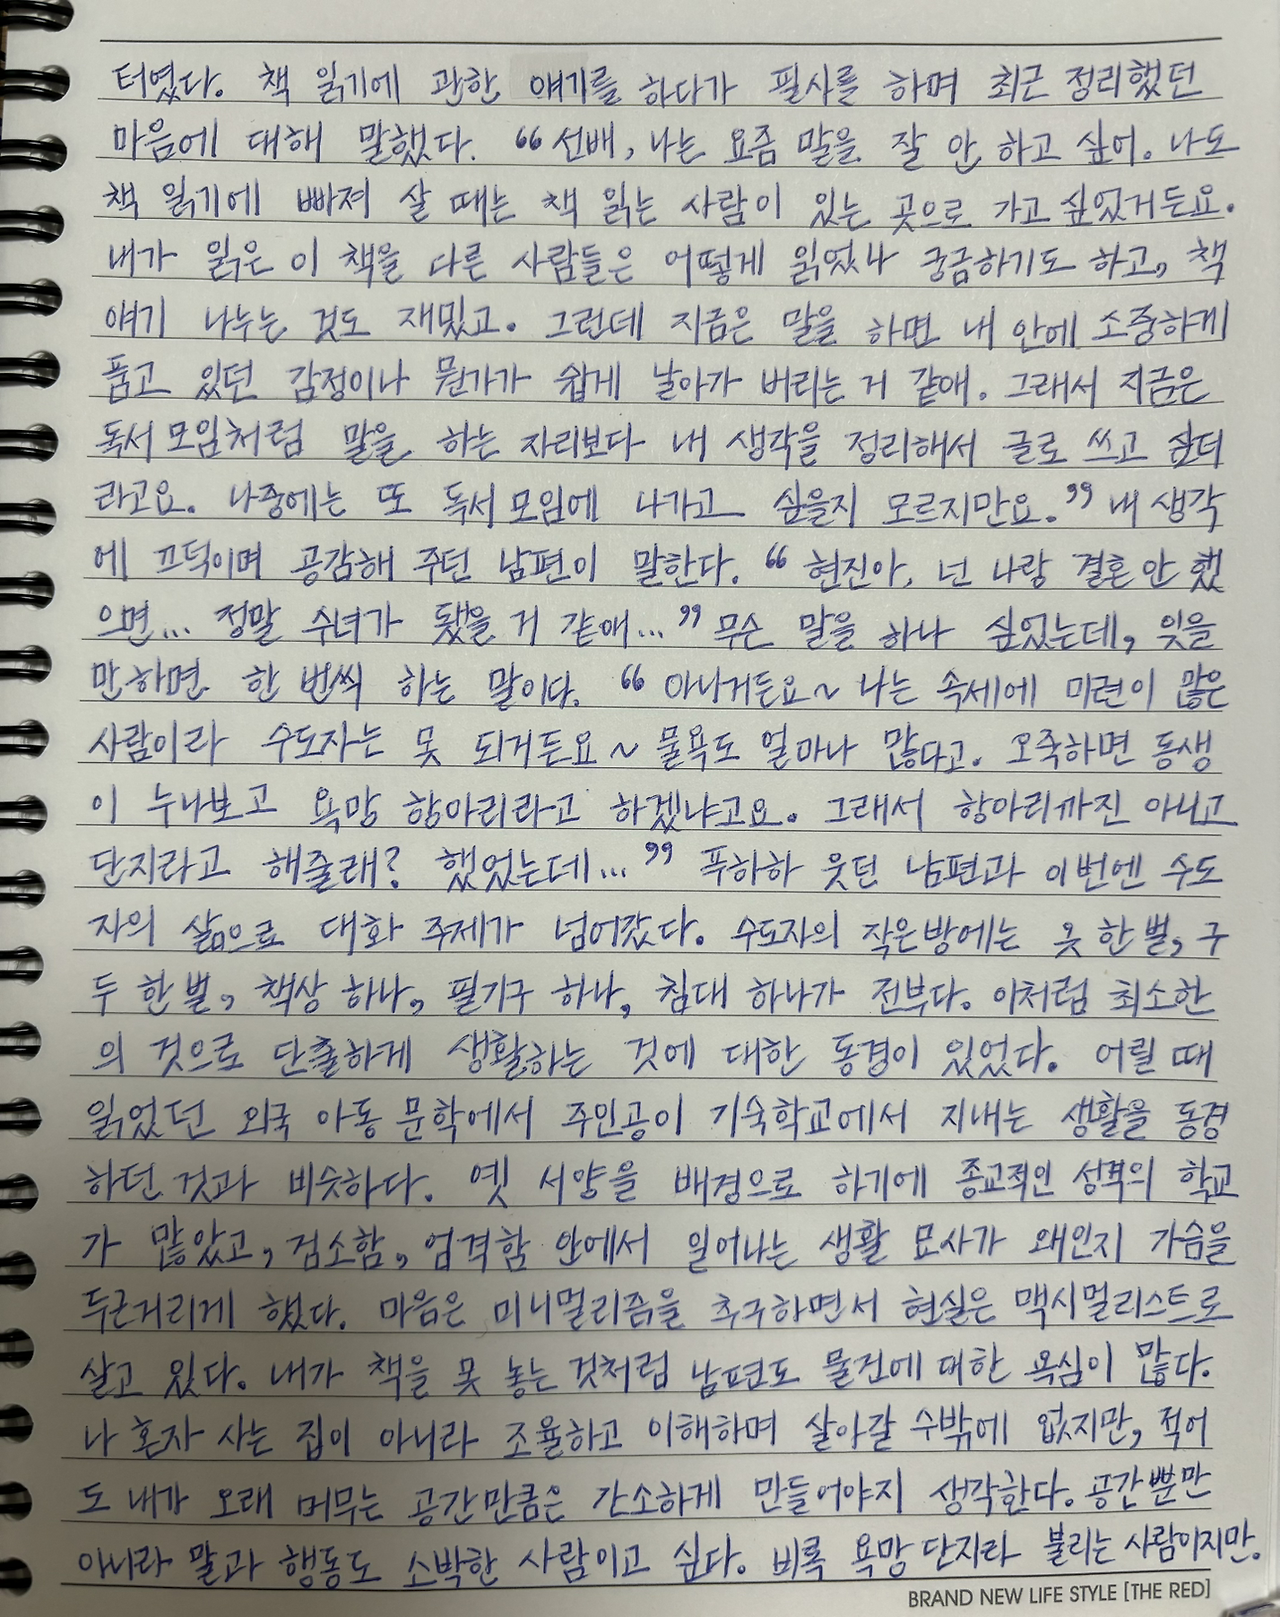 터였다. 책 읽기에 관한 얘기를 하다가 필사를 하며 최근 정리했던
마음에 대해 말했다. “선배, 나는 요즘 말을 잘 안 하고 싶어. 나도
책 읽기에 빠져 살 때는 책 읽는 사람이 있는 곳으로 가고 싶었거든요.
내가 읽은 이 책을 다른 사람들은 어떻게 읽었나 궁금하기도 하고, 책
얘기 나누는 것도 재밌고. 그런데 지금은 말을 하면 내 안에 소중하게
품고 있던 감정이나 뭔가가 쉽게 날아가 버리는 거 같애. 그래서 지금은
독서 모임처럼 말을 하는 자리보다 내 생각을 정리해서 글로 쓰고 싶더
라고요. 나중에는 또 독서 모임에 나가고 싶을지 모르지만요.” 내 생각
에 끄덕이며 공감해 주던 남편이 말한다. “현진아, 넌 나랑 결혼 안 했
으면... 정말 수녀가 됐을 거 같애...” 무슨 말을 하나 싶었는데, 잊을
만하면 한 번씩 하는 말이다. “아니거든요~ 나는 속세에 미련이 많은
사람이라 수도자는 못 되거든요~ 물욕도 얼마나 많다고. 오죽하면 동생
이 누나보고 욕망 항아리라고 하겠냐고요. 그래서 항아리까진 아니고
단지라고 해줄래? 했었는데...” 푸하하 웃던 남편과 이번엔 수도
자의 삶으로 대화 주제가 넘어갔다. 수도자의 작은 방에는 옷 한 벌, 구
두 한 벌, 책상 하나, 필기구 하나, 침대 하나가 전부다. 이처럼 최소한
의 것으로 단출하게 생활하는 것에 대한 동경이 있었다. 어릴 때
읽었던 외국 아동 문학에서 주인공이 기숙학교에서 지내는 생활을 동경
하던 것과 비슷하다. 옛 서양을 배경으로 하기에 종교적인 성격의 학교
가 많았고, 검소함, 엄격함 안에서 일어나는 생활 묘사가 왜인지 가슴을
두근거리게 했다. 마음은 미니멀리즘을 추구하면서 현실은 맥시멀리스트로
살고 있다. 내가 책을 못 놓는 것처럼 남편도 물건에 대한 욕심이 많다.
나 혼자 사는 집이 아니라 조율하고 이해하며 살아갈 수밖에 없지만, 적어
도 내가 오래 머무는 공간만큼은 간소하게 만들어야지 생각한다. 공간뿐만
아니라 말과 행동도 소박한 사람이고 싶다. 비록 욕망 단지라 불리는 사람이지만.
BRAND NEW LIFE STYLE [THE RED]